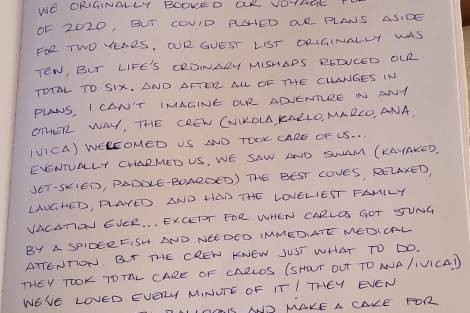 WE ORIGINALLY BOOKED OUR VOYAGE
OF 2020, BUT COVID PUSHED OUR PLANS ASIDE
FOR TWO YEARS. OUR GUEST LIST ORIGINALLY WAS
TEN, BUT LIFE'S ORDINARY MISHAPS REDUCED OUR
TOTAL TO SIX. AND AFTER ALL OF THE CHANGES IN
PLANS, I CAN'T IMAGINE OUR ADVENTURE IN ANY
OTHER WAY. THE CREW (NIKOLA, KARLO, MARCO, ANA,
IVICA) WELCOMED US AND TOOK CARE OF US...
EVENTUALLY CHARMED US. WE SAW AND SWAM (KAYAKED,
JET-SKIED, PADDLE-BOARDED) THE BEST COVES, RELAXED,
LAUGHED, PLAYED AND HAD THE LOVELIEST FAMILY
VACATION EVER... EXCEPT FOR WHEN CARLOS GOT STUNG
BY A SPIDERFISH AND NEEDED IMMEDIATE MEDICAL
ATTENTION. BUT THE CREW KNEW JUST WHAT TO DO.
THEY TOOK TOTAL CARE OF CARLOS (SHOUT OUT TO ANA/IVICA!)
WE'VE LOVED EVERY MINUTE OF IT! THEY EVEN
BALLOONS AND MAKE A CAKE FOR